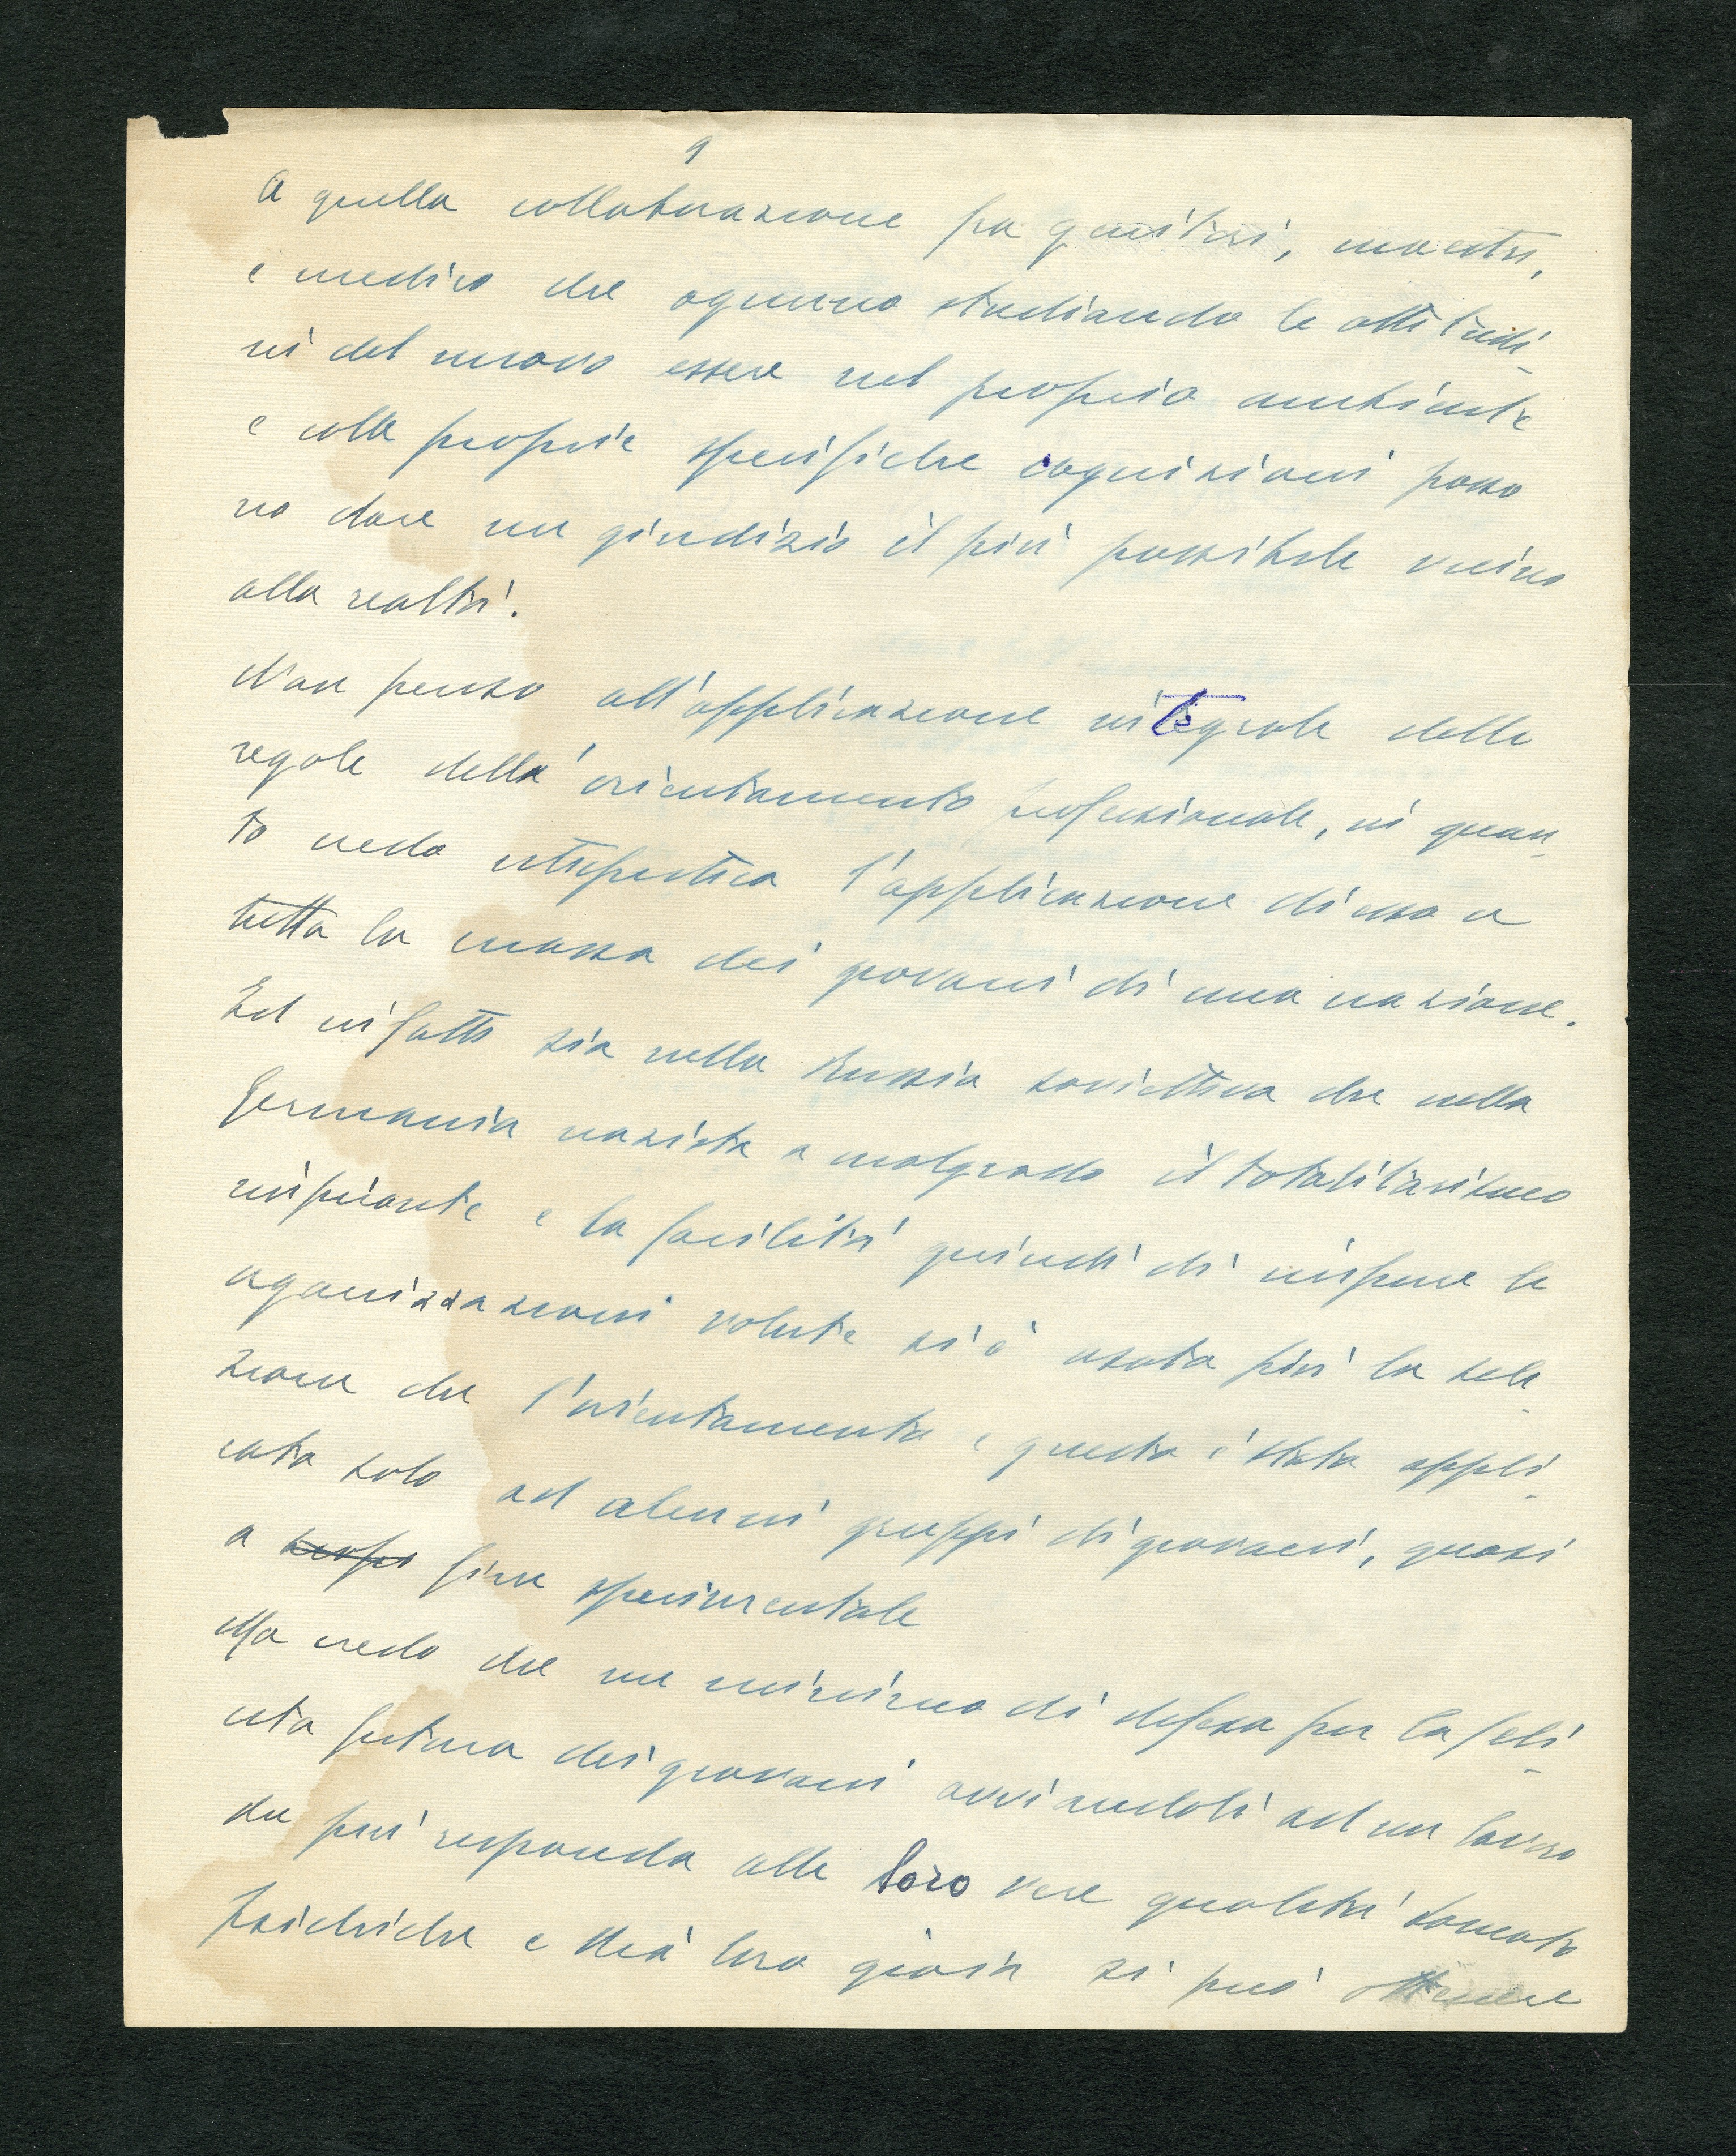 9
a quella collaborazione fra genitori, maestri,
e medico che ognuno studiando le attitudi-
ni del nuovo essere nel proprio ambiente
e colle proprie specifiche cognizioni posso
no dare un giudizio il più possibile vicino
alla realtà.
Non penso all'applicazione integrale delle
regole dell'orientamento professionale, in quan-
to credo utopistica l'applicazione di esso a
tutta la massa dei giovani di una nazione.
Ed infatti sia nella Russia soviettica che nella
Germania nazista a malgrado il totalitarismo
imperante e la facilità quindi di imporre le
organizzazioni volute si è usata più la sele-
zione che l'orientamento e questo è stato appli-
cato solo ad alcuni gruppi di giovani, quasi
a scopo fine sperimentale
Ma credo che un minimo di difesa per la feli-
cità futura dei giovani avviandoli ad un lavoro
che più risponda alle loro vere qualità somato
psichiche e alla loro gioia si può ottenere